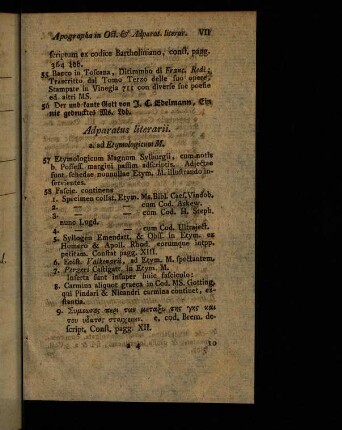 Apographa in Oct. & Adparat. literar. VII
scriptam ex codice Bartholiniano, const. pagg.
364 Ibb.
55 Bacco in Toscana, Ditirambo di Franc. Redi;
Trascritto dal Tomo Terzo delle sue opere,
Stampate in Vinegia 711 con diverse sue poesie
ed altri MS.
56 Der unbekante Gott von J. C. Edelmann, Ein
nie gedrucktes Ms. Ibb.
Adparatus literarii.
a. ad Etymologicum M.
57 Etymologicum Magnum Sylburgii, cum notis
b. Possess. margini passim adscriptis. Adjectae
sunt schedae nonnullae Etym. M. illustrando in-
servientes.
58 Fascic. continens
1. Specimen collat. Etym. Ms. Bibl. Caes. Vindob.
2. — — cum Cod. Askew.
3. — — cum Cod. H. Steph.
nunc Lugd.
4. — — cum Cod. Ultraject.
5. Syllogen Emendatt. & Obss. in Etym. ex
Homero & Apoll. Rhod. eorumque intpp.
petitam. Constat pagg. XIII.
6. Epist. Valkenarii, ad Etym. M. spectantem.
7. Pergeri Castigatt. in Etym. M.
Inserta sunt insuper huic fasciculo:
8. Carmina aliquot graeca in Cod. MS. Gotting.
qui Pindari & Nicandri carmina continet, ex-
stantia.
9. Συμεωνος περι των μεταξυ της γης και
του υδατος στοιχειων. e. cod. Brem. de-
script. Const. pagg. XII.
a 4 10